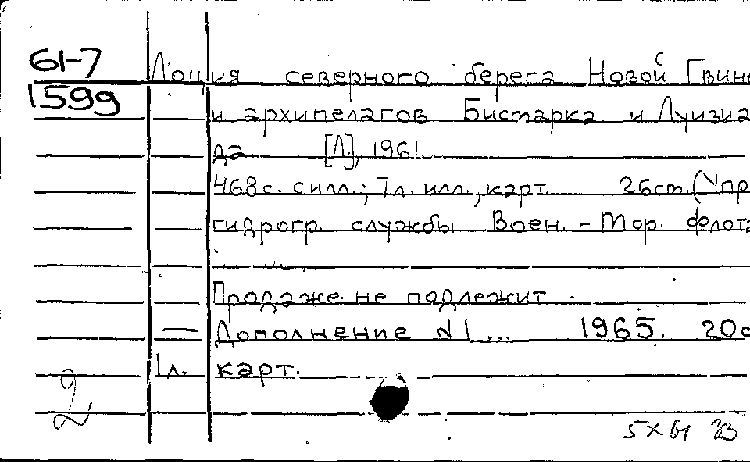 61-7
1599
Лоция северного берега Новой Гвине
и архипелагов Бисмарка и Луизиа
да [Л.], 1961.
468с. с илл.; 7л. илл., карт. 26см. (Упр.
гидрогр. службы Воен.-Мор. флота
Продаже не подлежит
— Дополнение №1... 1965. 20с
1л. карт.
2
5 X 61